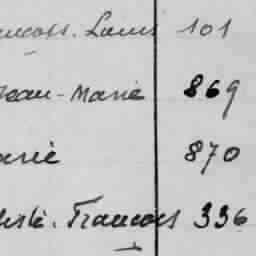 ançois. Louis 101
Jean-Marie 869
arie 870
tiste. François 336